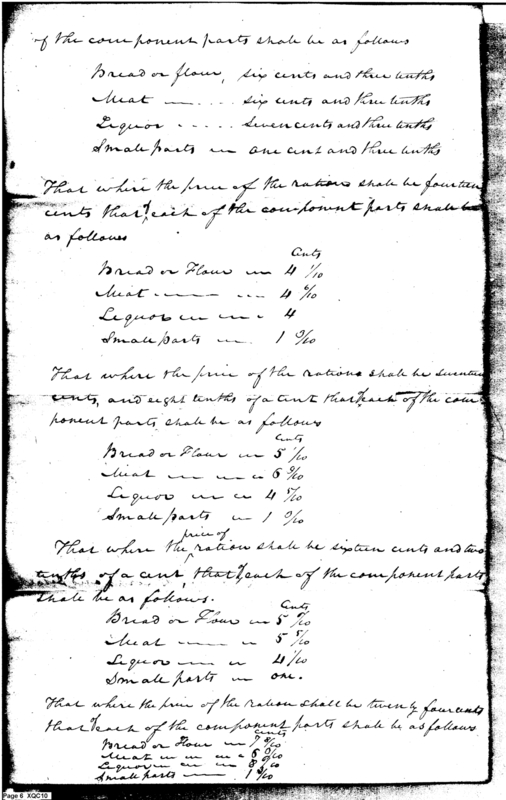 of the component parts shall be as follows
Bread or flour, six cents and three tenths
Meat — . . . six cents and three tenths
Liquor . . . . . seven cents and three tenths
Small parts — one cent and three tenths
That where the price of the rations shall be fourteen
cents that of each of the component parts shall be
as follows
Cents
Bread or Flour — 4 1/10
Meat — 4
Liquor — 4
Small parts — 1
That where the price of the rations shall be seventeen
cents, and eight tenths of a cent that of each of the com
ponent parts, shall be as follows
Cents
Bread or Flour — 5
Meat — 6
Liquor — 4
Small parts — 1
That where the price of ration shall be sixteen cents and two
tenths of a cent, that of each of the component parts
shall be as follows.
Cents
Bread or Flour — 5
Meat — 5
Liquor — 4 1/10
Small parts — one.
That where the price of the ration shall be twenty four cents
that of each of the component parts shall be as follows
Cents
Bread or Flour — 7
Meat —
Liquor — 8
Small parts — 1
Page 6 XQC10